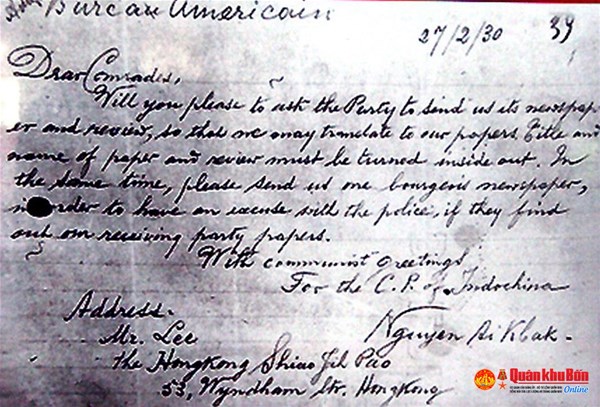 Bureau Américain
27/2/30 39
Dear Comrades,
Will you please to ask the Party to send us its newspap-
er and review, so that we may translate to our papers. Title and
name of paper and review must be turned inside out. In
the same time, please send us one bourgeois newspaper,
in order to have an excuse with the police, if they find
out our receiving party papers.
With communist greetings
For the C.P. of Indochina
Nguyen Ai Kbak-
Address-
Mr. Lee
the Hongkong Shiao Jih Pao
53, Wyndham Str. Hongkong
Quân khu Bốn
Online